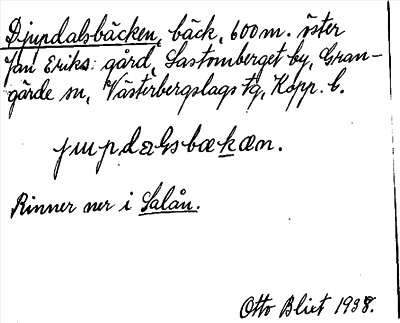 Djupdalsbäcken, bäck, 600 m. öster
Jan Eriks: gård, Saxtomberget by, Gran-
gärde sn, Västerbergslags tg, Kopp. l.
jupdalsbækæn.
Rinner ner i Salån.
Otto Blixt 1938.